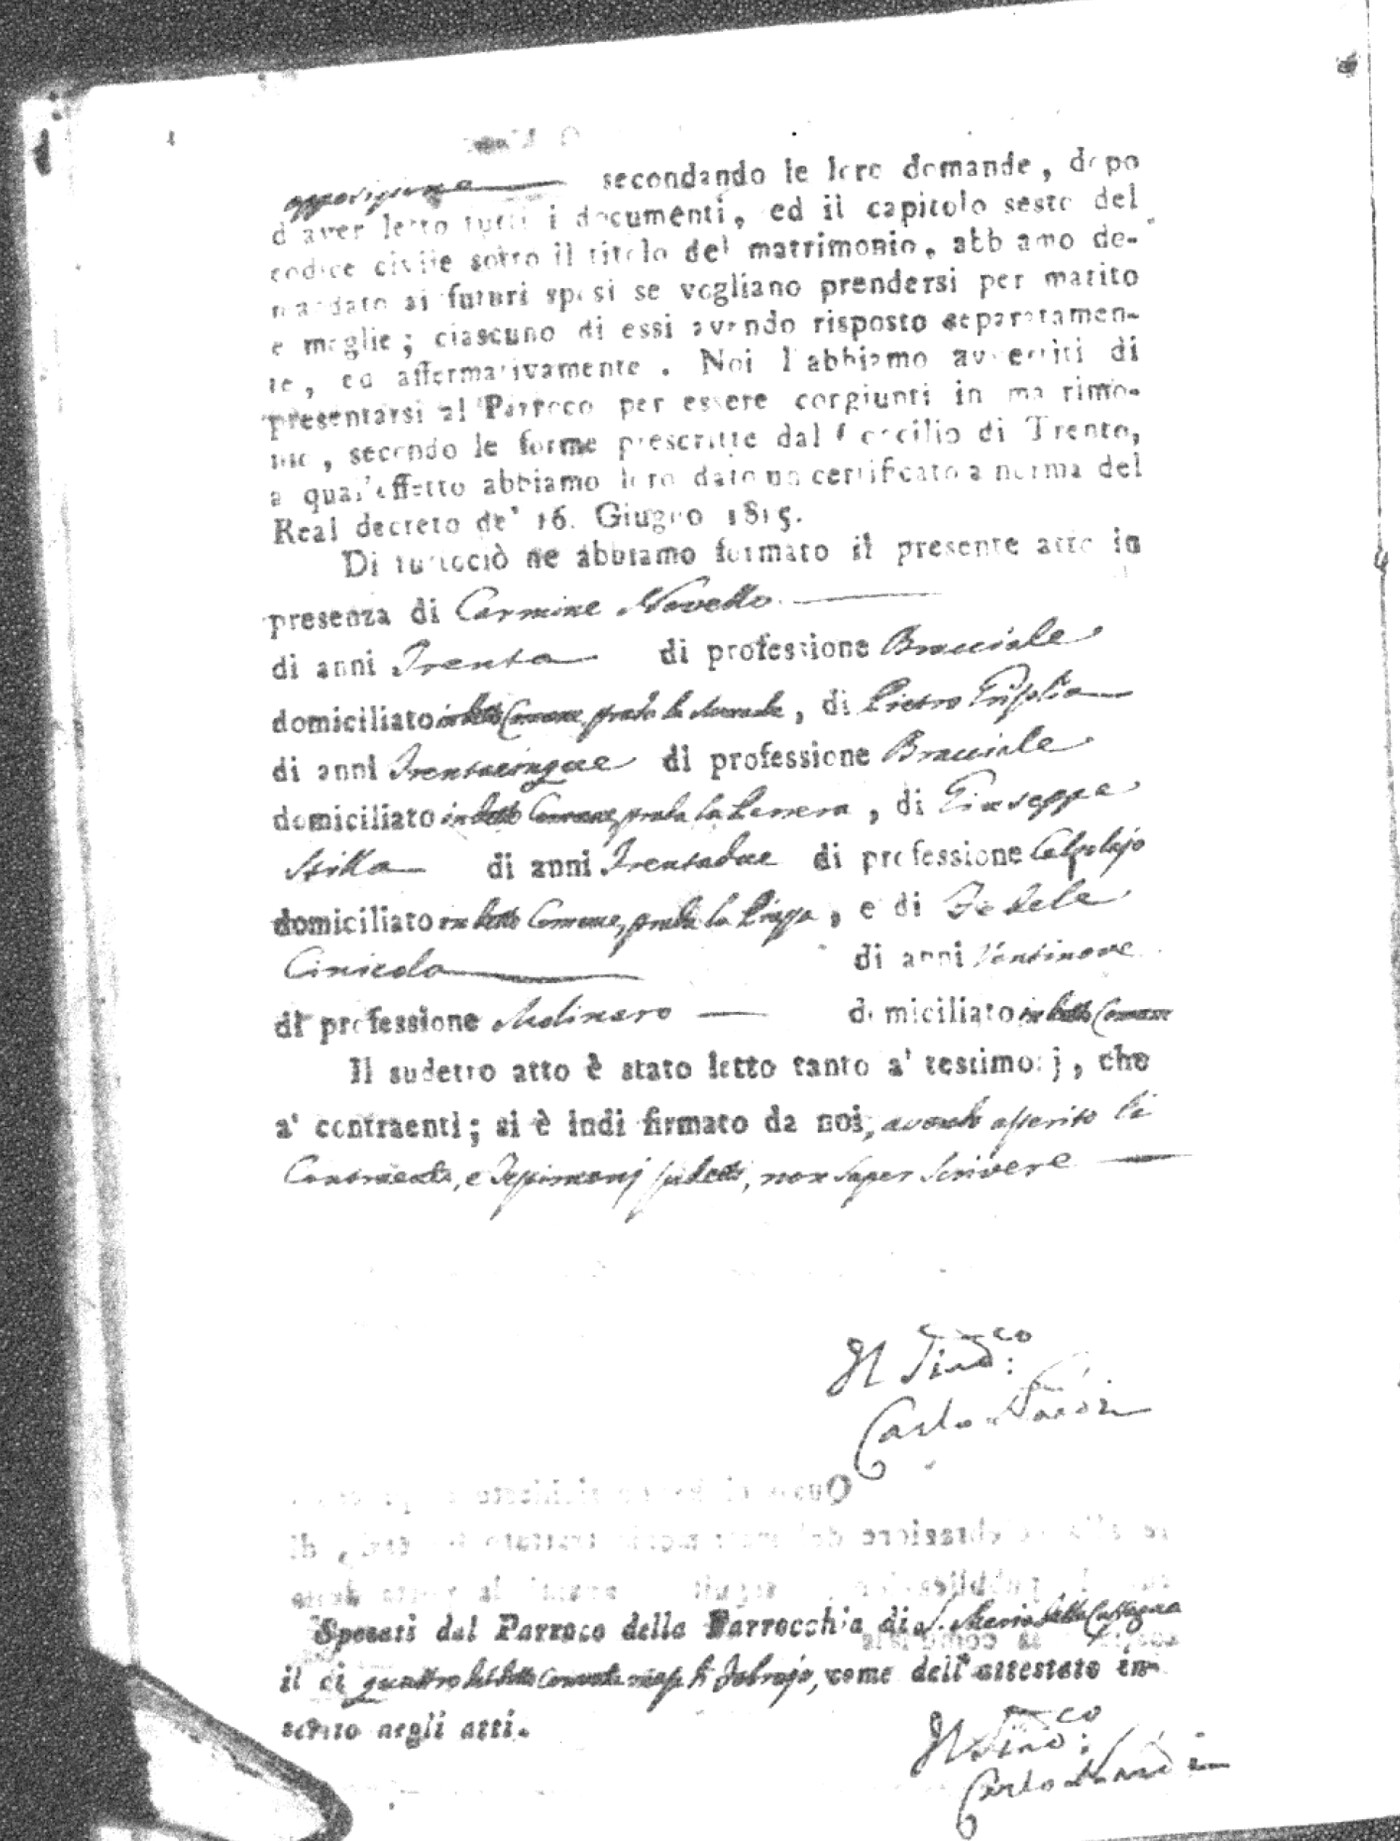 opposizione secondando le loro domande, dopo
d'aver letto tutti i documenti, ed il capitolo sesto del
codice civile sotto il titolo del matrimonio, abbiamo de-
mandato ai futuri sposi se vogliano prendersi per marito
e moglie; ciascuno di essi avendo risposto separatamen-
te, ed affermativamente. Noi l'abbiamo avvertiti di
presentarsi al Parroco per essere congiunti in matrimo-
nio, secondo le forme prescritte dal Concilio di Trento,
a qual'effetto abbiamo loro dato un certificato a norma del
Real decreto de' 16. Giugno 1815.
Di tuttociò ne abbiamo formato il presente atto in
presenza di Carmine Novello
di anni Trenta di professione Bracciale
domiciliato in detto Comune, strada la, di Pietro Grisolia
di anni Trentacinque di professione Bracciale
domiciliato in detto Comune, strada la, di Giuseppe
Stilla di anni Trentadue di professione Calzolajo
domiciliato in detto Comune, strada la Piazza, e di Fedele
Cinicola di anni Ventinove
di professione Molinaro domiciliato in detto Comune
Il sudetto atto è stato letto tanto a' testimonj, che
a' contraenti; si è indi firmato da noi, avendo asserito li
Contraenti, e Testimonj sudetti, non saper scrivere
Il Sind:co
Carlo
Sposati dal Parroco della Parrocchia di S. Maria della
il di quattro del detto corrente mese di Febrajo, come dell'attestato in-
serito negli atti.
Il Sind:co
Carlo